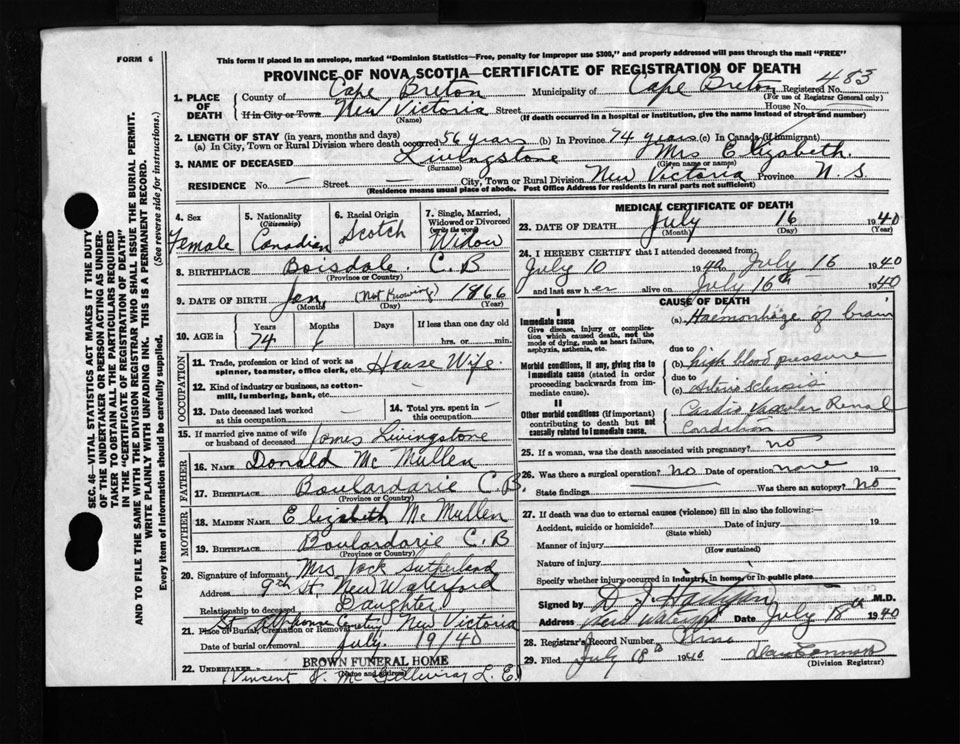 FORM 6
This form if placed in an envelope, marked "Dominion Statistics—Free, penalty for improper use $300," and properly addressed will pass through the mail "FREE"
PROVINCE OF NOVA SCOTIA—CERTIFICATE OF REGISTRATION OF DEATH
483
1. PLACE OF DEATH
County of Cape Breton Municipality of Cape Breton Registered No.
(For use of Registrar General only)
If in City or Town New Victoria Street House No.
(Name) (If death occurred in a hospital or institution, give the name instead of street and number)
2. LENGTH OF STAY (in years, months and days)
(a) In City, Town or Rural Division where death occurred 56 years (b) In Province 74 years (c) In Canada (if immigrant)
3. NAME OF DECEASED Livingstone Mrs Elizabeth.
(Surname) (Given name or names)
RESIDENCE No. — Street — City, Town or Rural Division New Victoria Province N.S.
(Residence means usual place of abode. Post Office Address for residents in rural parts not sufficient)
4. Sex Female
5. Nationality (Citizenship) Canadian
6. Racial Origin Scotch
7. Single, Married, Widowed or Divorced (write the word) Widow
8. BIRTHPLACE Boisdale. C.B
(Province or Country)
9. DATE OF BIRTH Jan (Not Knowing) 1866
(Month) (Day) (Year)
10. AGE in Years Months Days If less than one day old
74 hrs. or min.
OCCUPATION
11. Trade, profession or kind of work as spinner, teamster, office clerk, etc. House Wife.
12. Kind of industry or business, as cotton-mill, lumbering, bank, etc. —
13. Date deceased last worked at this occupation —
14. Total yrs. spent in this occupation —
15. If married give name of wife or husband of deceased James Livingstone
FATHER
16. NAME Donald McMullen
17. BIRTHPLACE Boulardarie C.B.
(Province or Country)
MOTHER
18. MAIDEN NAME Elizabeth McMullen
19. BIRTHPLACE Boulardarie C.B
(Province or Country)
20. Signature of informant Mrs Jack Sutherland
Address 9th St. New Waterford
Relationship to deceased Daughter
21. Place of Burial, Cremation or Removal St Alphonse Cemetery New Victoria
Date of burial or removal July. 19/40
22. UNDERTAKER BROWN FUNERAL HOME
(Name and address)
(Vincent J. McGillivray L.E.)
MEDICAL CERTIFICATE OF DEATH
23. DATE OF DEATH July 16 1940
(Month) (Day) (Year)
24. I HEREBY CERTIFY that I attended deceased from:
July 10 1940 to July 16 1940
and last saw her alive on July 16th 1940
CAUSE OF DEATH
I
Immediate cause
Give disease, injury or complication which caused death, not the mode of dying, such as heart failure, asphyxia, asthenia, etc.
(a) Haemorrhage of brain
due to
Morbid conditions, if any, giving rise to immediate cause (stated in order proceeding backwards from immediate cause).
(b) high blood pressure
due to
(c) Arterio Sclerosis
II
Other morbid conditions (if important) contributing to death but not causally related to immediate cause.
Cardio Vascular Renal
Condition
25. If a woman, was the death associated with pregnancy? no
26. Was there a surgical operation? no Date of operation none 19
State findings — Was there an autopsy? No
27. If death was due to external causes (violence) fill in also the following:—
Accident, suicide or homicide? Date of injury 19
(State which)
Manner of injury
(How sustained)
Nature of injury
Specify whether injury occurred in industry, in home, or in public place
Signed by D. J. Hartigan M.D.
Address New Waterford Date July 18th 1940
28. Registrar's Record Number
29. Filed July 18th 1940
(Division Registrar)
SEC. 46—VITAL STATISTICS ACT MAKES IT THE DUTY OF THE UNDERTAKER OR PERSON ACTING AS UNDERTAKER TO OBTAIN ALL THE PARTICULARS REQUIRED IN THE "CERTIFICATE OF REGISTRATION OF DEATH"
AND TO FILE THE SAME WITH THE DIVISION REGISTRAR WHO SHALL ISSUE THE BURIAL PERMIT.
WRITE PLAINLY WITH UNFADING INK. THIS IS A PERMANENT RECORD.
Every item of information should be carefully supplied. (See reverse side for instructions.)